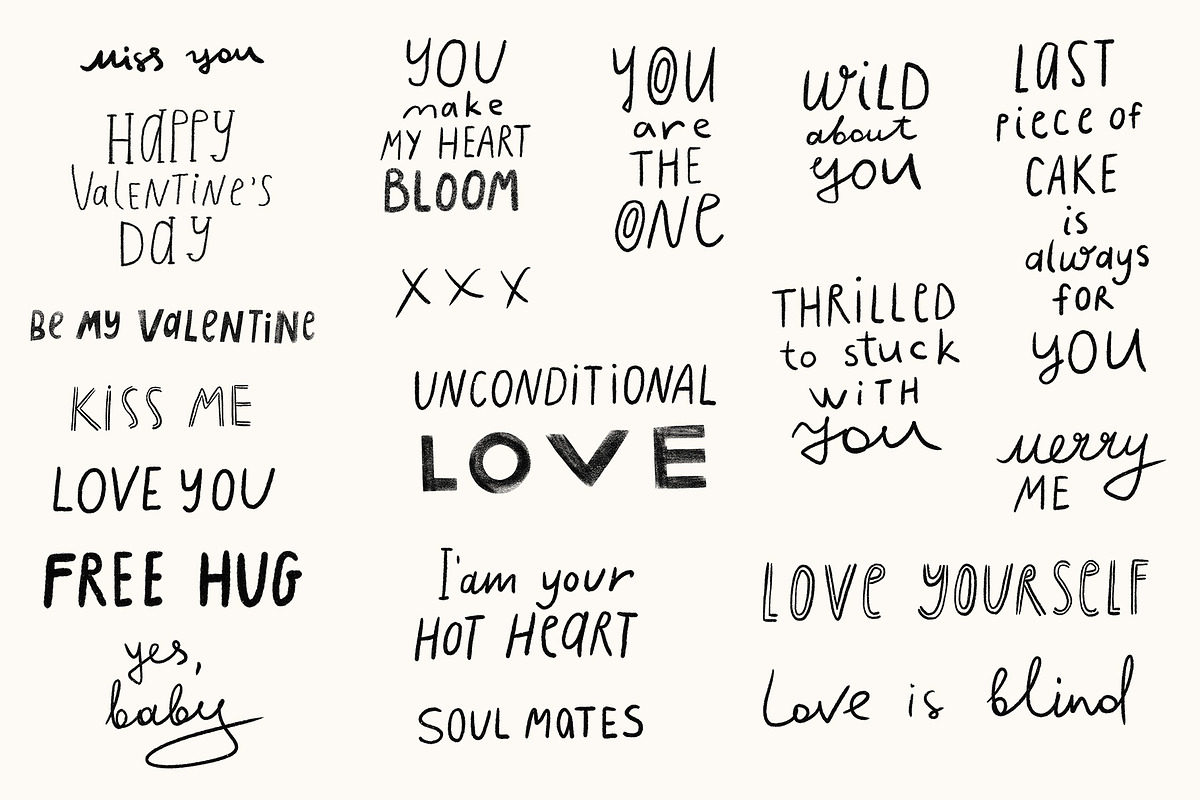 miss you
Happy
Valentine's
Day
Be my Valentine
KISS ME
LOVE YOU
FREE HUG
yes,
baby
YOU
make
MY HEART
BLOOM
X X X
UNCONDITIONAL
LOVE
I'am your
HOT HeART
SOUL MATES
YOU
are
THE
ONe
WiLD
about
you
THRiLLeD
to stuck
WiTH
you
LAST
piece of
CAKE
is
always
FOR
YOU
Merry
ME
LOVe YOURSeLF
Love is blind